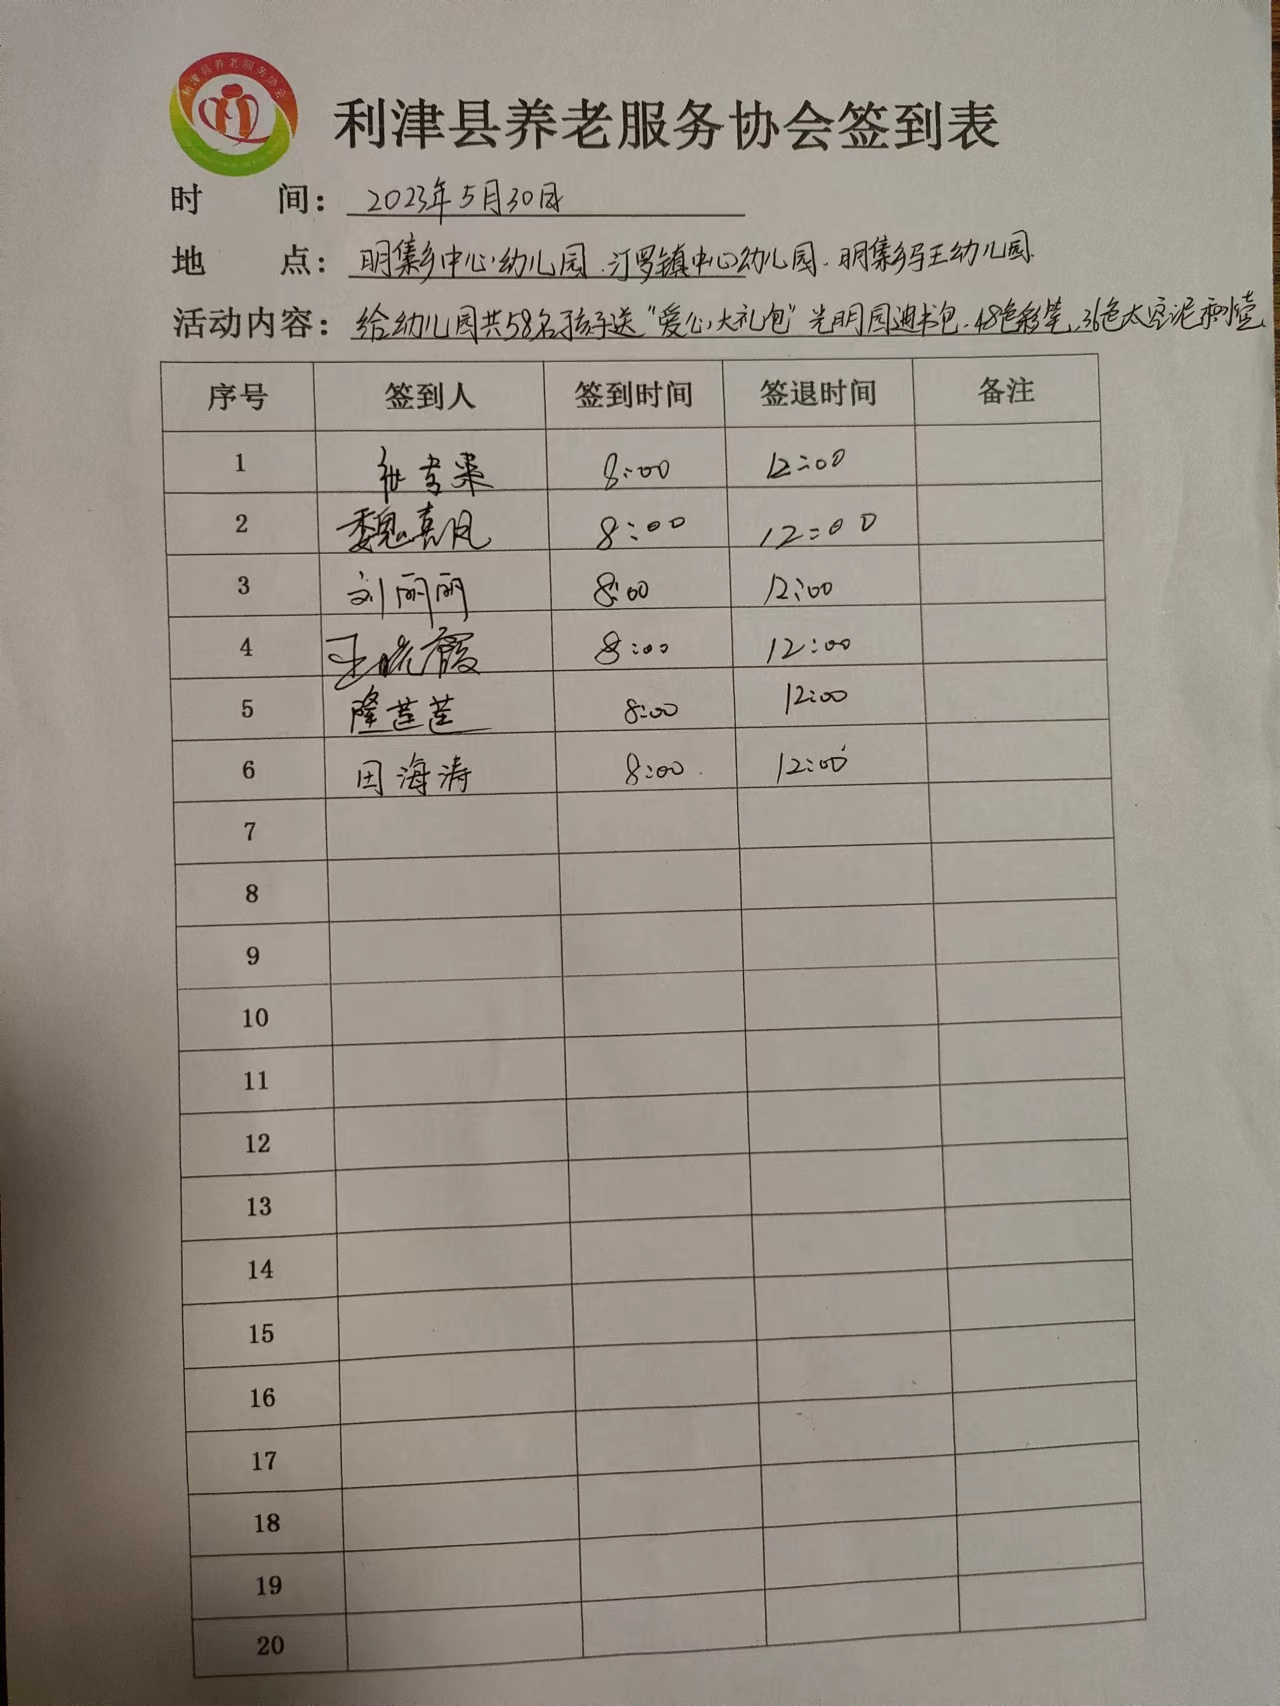 利津县养老服务协会
利津县养老服务协会签到表
时 间： 2023年5月30日
地 点： 明集乡中心幼儿园.汀罗镇中心幼儿园.明集乡马王幼儿园.
活动内容： 给幼儿园共58名孩子送“爱心大礼包”光明园迪书包.48色彩笔.36色太空泥和
序号 签到人 签到时间 签退时间 备注
1 8:00 12:00
2 魏喜凤 8:00 12:00
3 刘丽丽 8:00 12:00
4 王晓霞 8:00 12:00
5 隆莲莲 8:00 12:00
6 田海涛 8:00 12:00
7
8
9
10
11
12
13
14
15
16
17
18
19
20